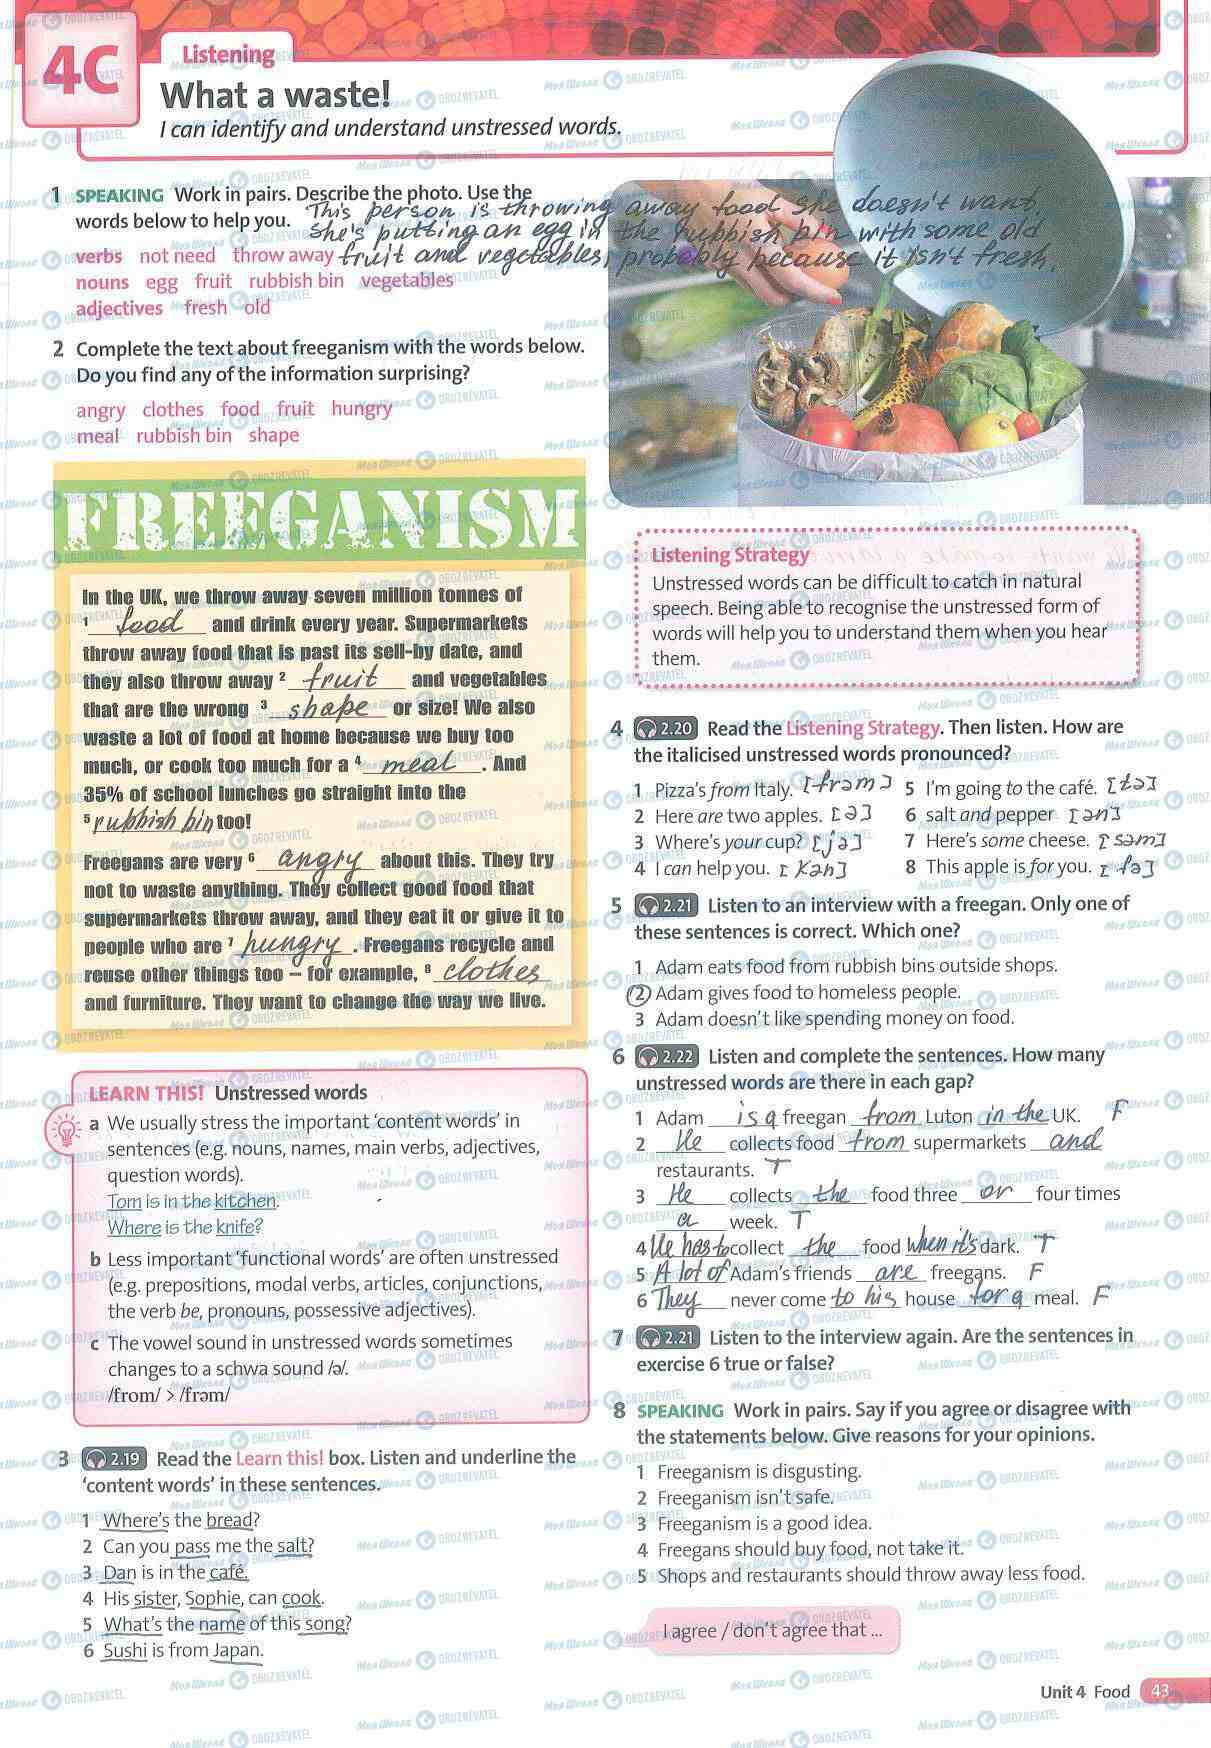 4C
Listening
What a waste!
I can identify and understand unstressed words.
1 SPEAKING Work in pairs. Describe the photo. Use the
words below to help you.
This person is throwing away food she doesn't want,
she's putting an egg in the rubbish bin with some old
fruit and vegetables, probably because it isn't fresh.
verbs not need throw away
nouns egg fruit rubbish bin vegetables
adjectives fresh old
2 Complete the text about freeganism with the words below.
Do you find any of the information surprising?
angry clothes food fruit hungry
meal rubbish bin shape
FREEGANISM
In the UK, we throw away seven million tonnes of
1 food and drink every year. Supermarkets
throw away food that is past its sell-by date, and
they also throw away 2 fruit and vegetables
that are the wrong 3 shape or size! We also
waste a lot of food at home because we buy too
much, or cook too much for a 4 meal. And
35% of school lunches go straight into the
5 rubbish bin too!
Freegans are very 6 angry about this. They try
not to waste anything. They collect good food that
supermarkets throw away, and they eat it or give it to
people who are 7 hungry. Freegans recycle and
reuse other things too – for example, 8 clothes
and furniture. They want to change the way we live.
LEARN THIS! Unstressed words
a We usually stress the important 'content words' in
sentences (e.g. nouns, names, main verbs, adjectives,
question words).
Tom is in the kitchen.
Where is the knife?
b Less important 'functional words' are often unstressed
(e.g. prepositions, modal verbs, articles, conjunctions,
the verb be, pronouns, possessive adjectives).
c The vowel sound in unstressed words sometimes
changes to a schwa sound /ə/.
/from/ > /frəm/
3 2.19 Read the Learn this! box. Listen and underline the
'content words' in these sentences.
1 Where's the bread?
2 Can you pass me the salt?
3 Dan is in the café.
4 His sister, Sophie, can cook.
5 What's the name of this song?
6 Sushi is from Japan.
Listening Strategy
Unstressed words can be difficult to catch in natural
speech. Being able to recognise the unstressed form of
words will help you to understand them when you hear
them.
4 2.20 Read the Listening Strategy. Then listen. How are
the italicised unstressed words pronounced?
1 Pizza's from Italy. [frəm] 5 I'm going to the café. [tə]
2 Here are two apples. [ə] 6 salt and pepper [ən]
3 Where's your cup? [jə] 7 Here's some cheese. [səm]
4 I can help you. [kən] 8 This apple is for you. [fə]
5 2.21 Listen to an interview with a freegan. Only one of
these sentences is correct. Which one?
1 Adam eats food from rubbish bins outside shops.
2 Adam gives food to homeless people.
3 Adam doesn't like spending money on food.
6 2.22 Listen and complete the sentences. How many
unstressed words are there in each gap?
1 Adam is a freegan from Luton in the UK. F
2 He collects food from supermarkets and
restaurants. T
3 He collects the food three or four times
a week. T
4 He has to collect the food when it's dark. T
5 A lot of Adam's friends are freegans. F
6 They never come to his house for a meal. F
7 2.21 Listen to the interview again. Are the sentences in
exercise 6 true or false?
8 SPEAKING Work in pairs. Say if you agree or disagree with
the statements below. Give reasons for your opinions.
1 Freeganism is disgusting.
2 Freeganism isn't safe.
3 Freeganism is a good idea.
4 Freegans should buy food, not take it.
5 Shops and restaurants should throw away less food.
I agree / don't agree that ...
Unit 4 Food 43
Моя Школа OBOZREVATEL